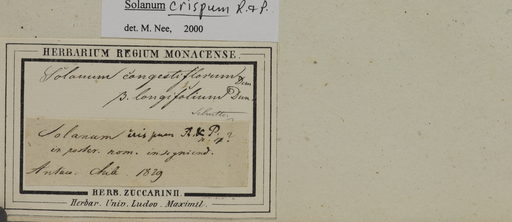 Solanum crispum R. & P.
det. M. Nee, 2000
HERBARIUM REGIUM MONACENSE.
Solanum congestiflorum Dun
β. longifolium Dun.
Solanum crispum R & P.
n. sp?
in poster. nom. insigniend.
Antuco. Chile 1829
HERB. ZUCCARINII.
Herbar. Univ. Ludov. Maximil.